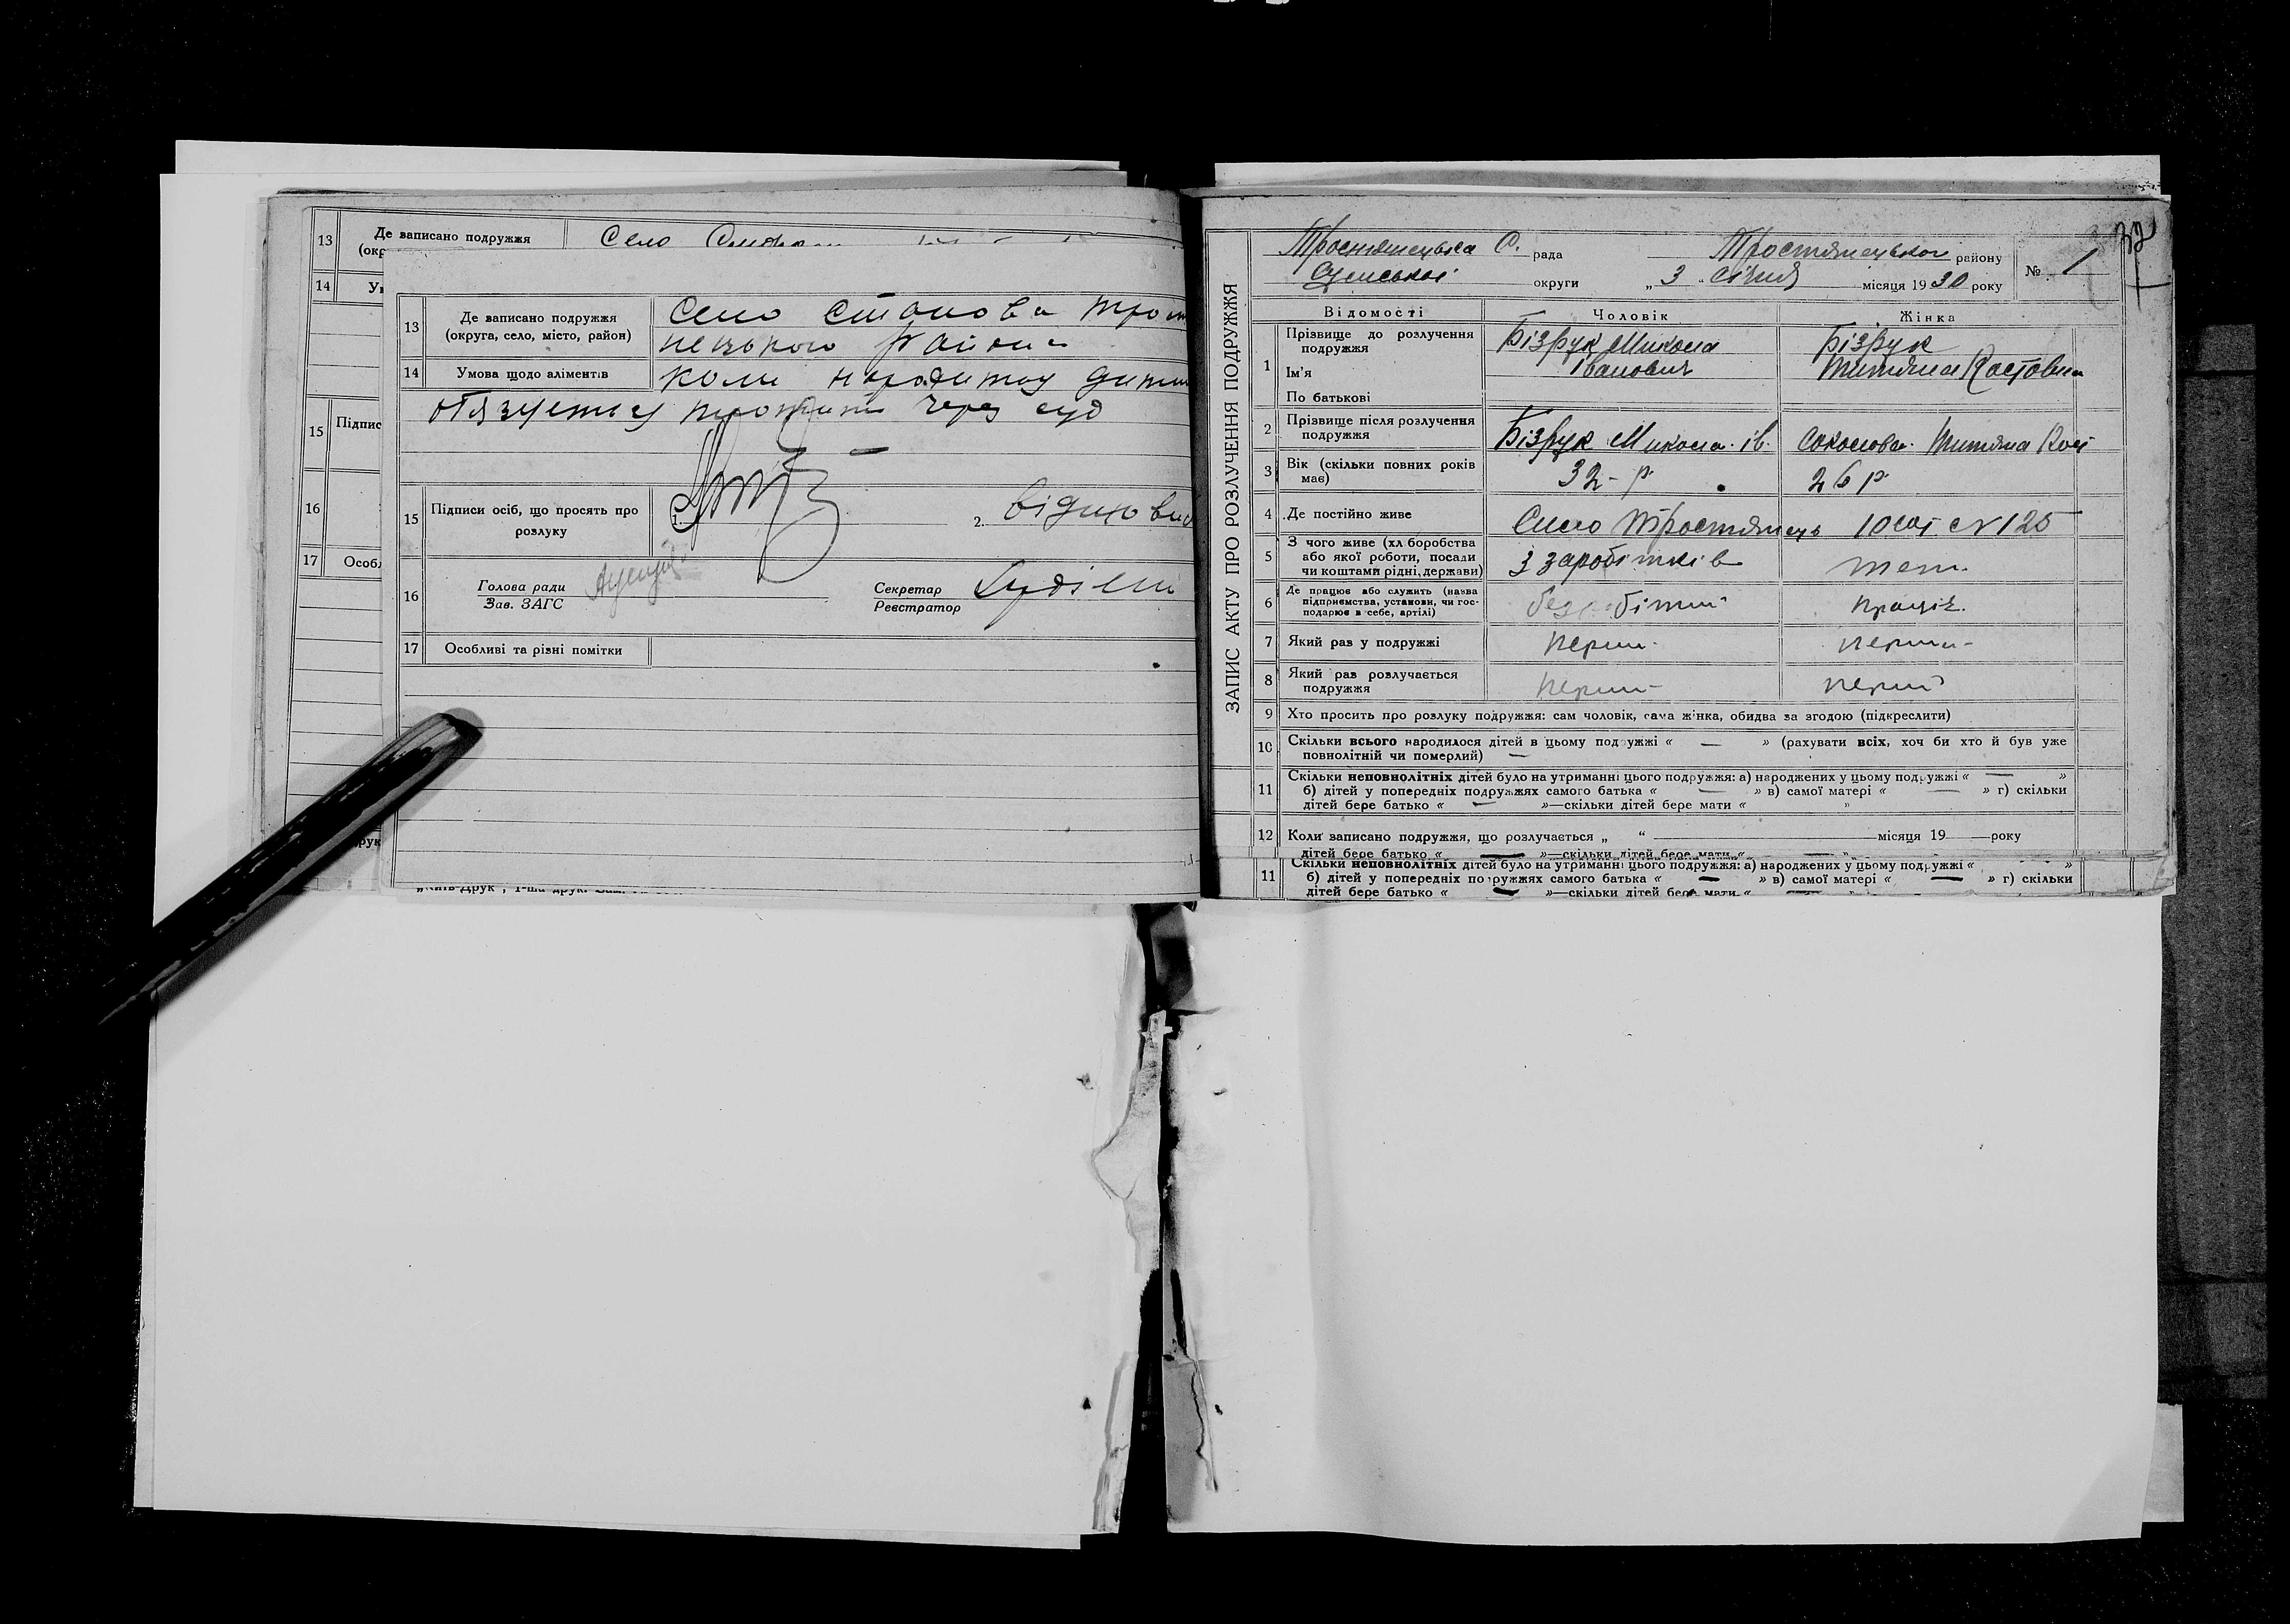 13 Де записано подружжя Село
(окр
14 Ум
15 Підпис
16
17 Особл
13 Де записано подружжя
(округа, село, місто, район)
Село Станова Трост
нецького Району
14 Умова щодо аліментів коли народитця дитин
обязуетця через суд
15 Підписи осіб, що просять про
розлуку
1.
2. відмовив
16 Голова ради
Зав. ЗАГС
Секретар
Реєстратор
17 Особливі та різні помітки
ЗАПИС АКТУ ПРО РОЗЛУЧЕННЯ ПОДРУЖЖЯ
32
Тростянецька С. рада Тростянецького району № 1
Сумської округи „3“ січня місяця 1930 року
Відомості Чоловік Жінка
1 Прізвище до розлучення
подружжя
Ім'я
По батькові
Бізрук Микола
Іванович
Бізрук
Титяна Костовна
2 Прізвище після розлучення
подружжя
Бізрук Микола Ів. Соколова Титяна Кос
3 Вік (скільки повних років
має)
32 - р. 26 р
4 Де постійно живе Село Тростянець 10 сот №125
5 З чого живе (хл боробства
або якої роботи, посади
чи коштами рідні, держави)
З заробітків теж.
6 Де працює або служить (назва
підприємства, установи, чи гос-
подарює в себе, артілі)
безробітний
7 Який раз у подружжі перш- перши-
8 Який раз розлучається
подружжя
перш- перший
9 Хто просить про розлуку подружжя: сам чоловік, сама жінка, обидва за згодою (підкреслити)
10 Скільки всього народилося дітей в цьому подружжі « — » (рахувати всіх, хоч би хто й був уже
повнолітній чи померлий) —
11 Скільки неповнолітніх дітей було на утриманні цього подружжя: а) народжених у цьому подружжі « — »
б) дітей у попередніх подружжях самого батька « — » в) самої матері « — » г) скільки
дітей бере батько « — »—скільки дітей бере мати « »
12 Коли записано подружжя, що розлучається „ “ місяця 19 року
дітей бере батько « — »—скільки дітей бере мати « — »
11 Скільки неповнолітніх дітей було на утриманні цього подружжя: а) народжених у цьому подружжі « »
б) дітей у попередніх подружжях самого батька « — » в) самої матері « — » г) скільки
дітей бере батько « — »—скільки дітей бере мати « — »